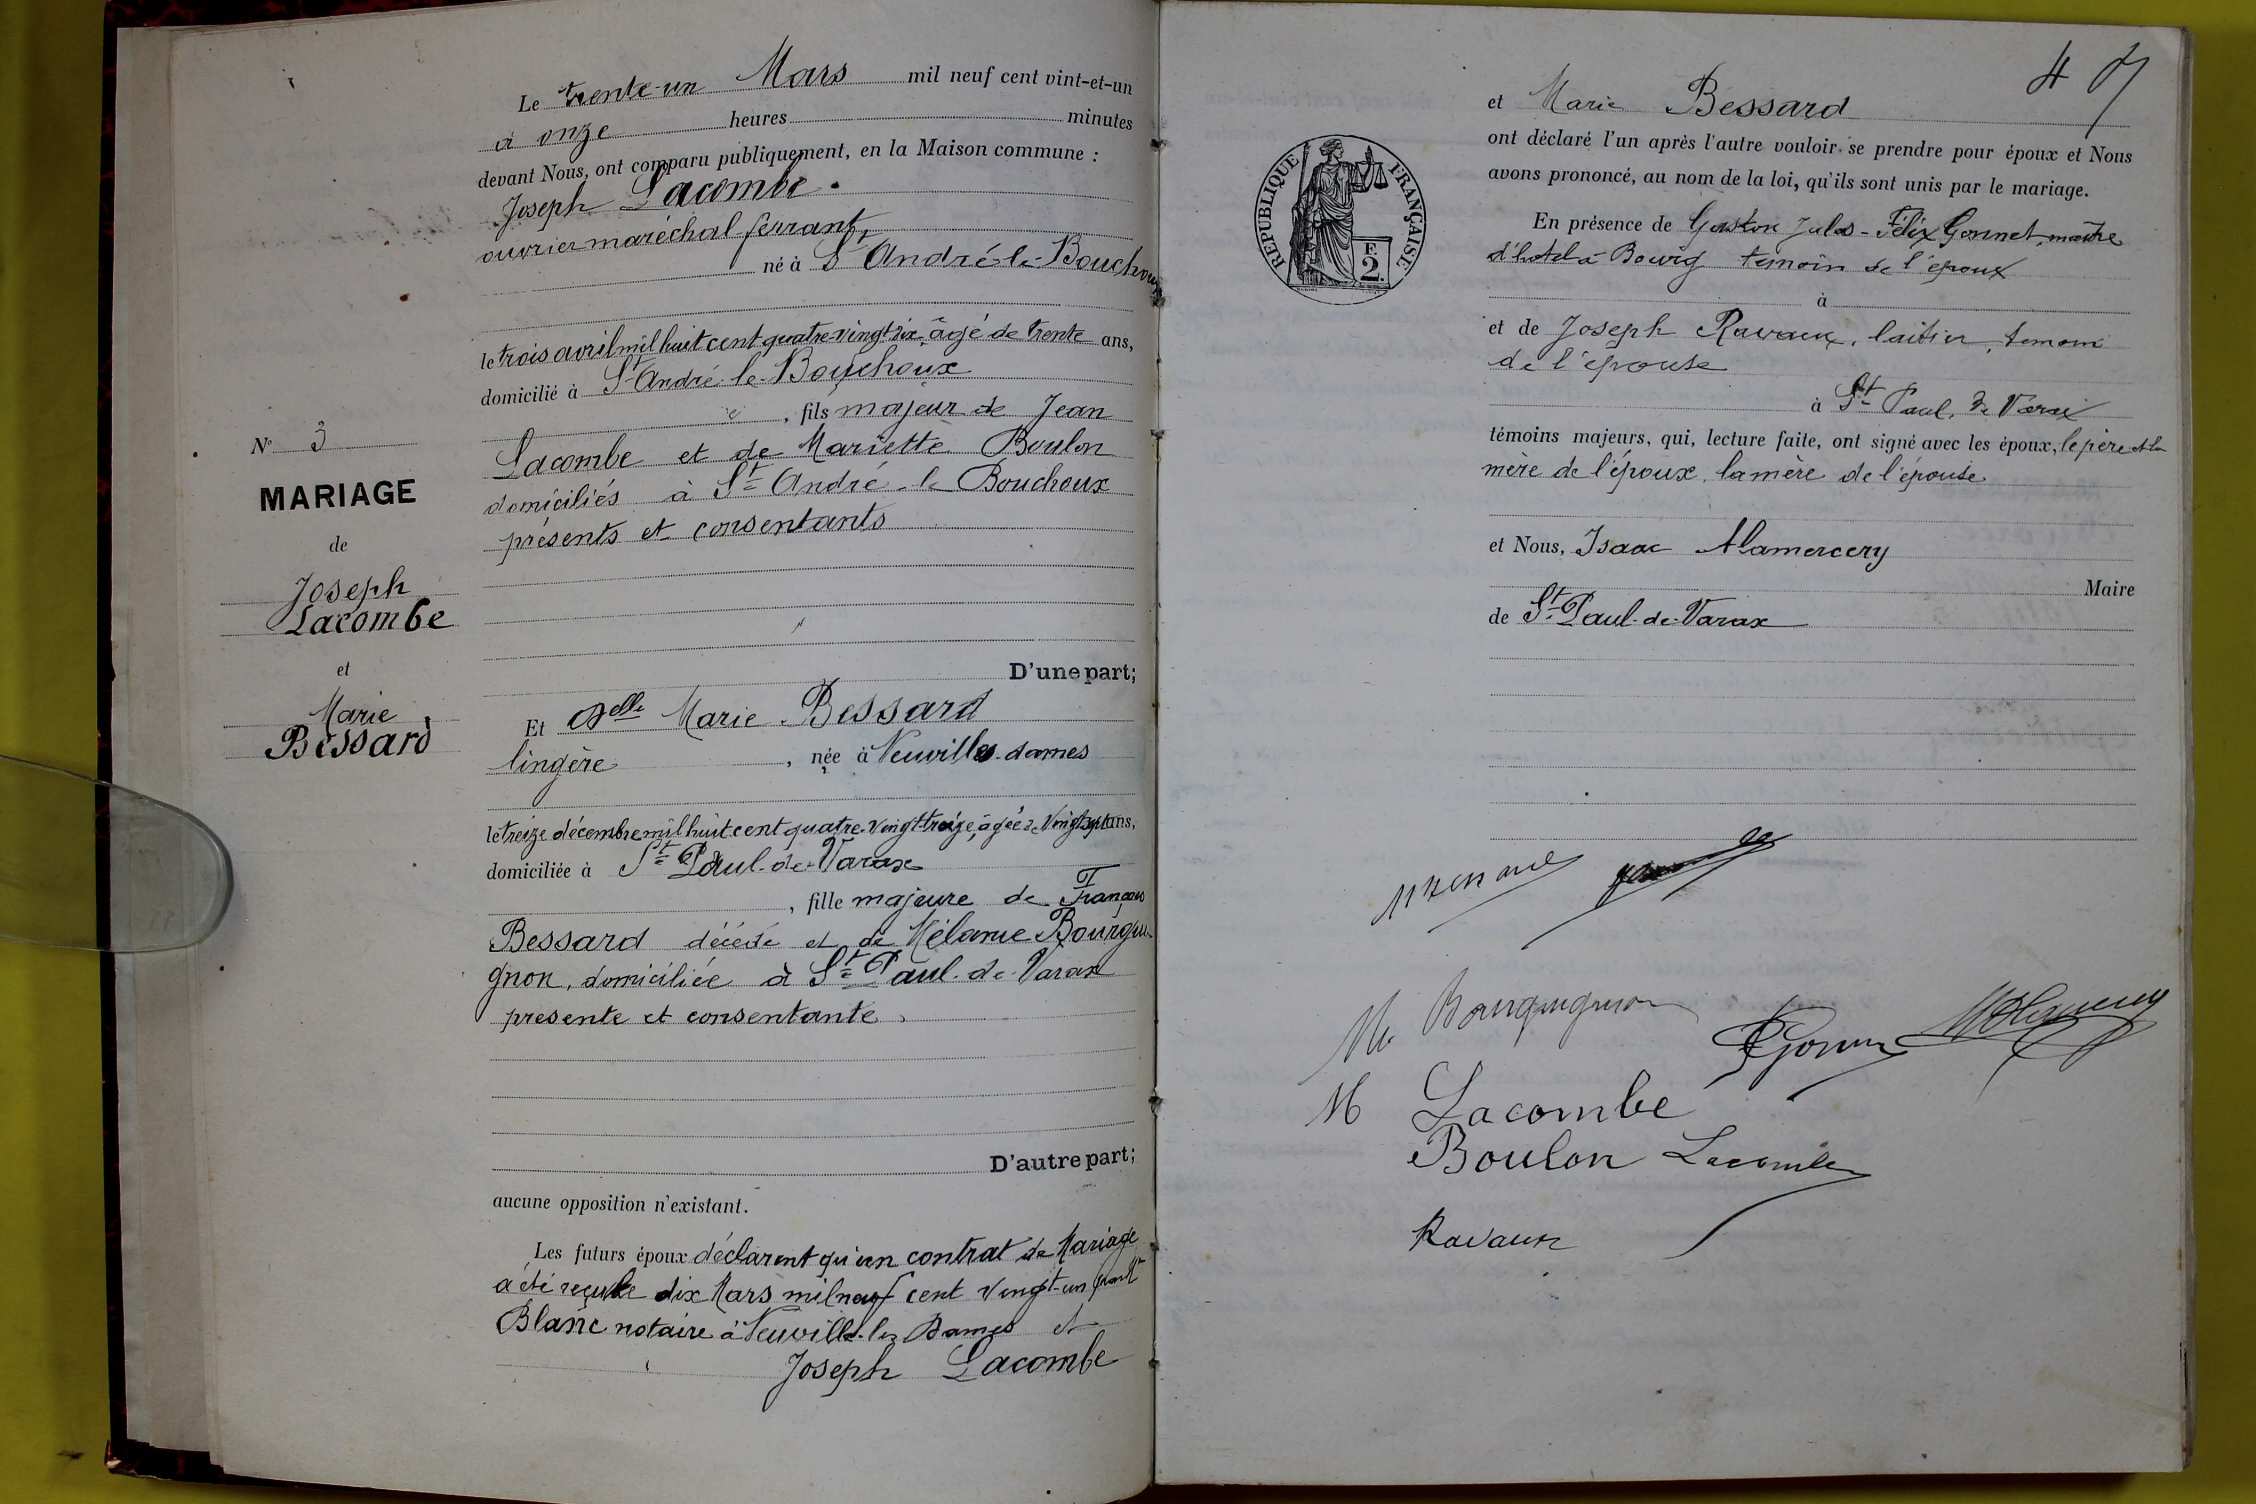 Le trente-un Mars mil neuf cent vint-et-un
à onze heures minutes
devant Nous, ont comparu publiquement, en la Maison commune :
Joseph Lacombe.
ouvrier maréchal ferrant,
né à St André-le-Bouchoux
le trois avril mil huit cent quatre-vingt-dix, âgé de trente ans,
domicilié à St André-le-Bouchoux
, fils majeur de Jean
Lacombe et de Mariette Boulon
domiciliés à St André-le Bouchoux
présents et consentants
D'une part;
Et Delle Marie Bessard
lingère , née à Neuville-dames
le treize décembre mil huit cent quatre-vingt-treize, âgée de vingt sept ans,
domiciliée à St Paul-de-Varax
, fille majeure de François
Bessard décédé et de Mélanie Bourgui-
gnon, domiciliée à St Paul-de-Varax
présente et consentante.
D'autre part;
aucune opposition n'existant.
Les futurs époux déclarent qu'un contrat de Mariage
a été reçu le dix Mars mil neuf cent vingt-un par Me
Blanc notaire à Neuville-les Dames et
Joseph Lacombe
No 3
MARIAGE
de
Joseph
Lacombe
et
Marie
Bessard
47
et Marie Bessard
ont déclaré l'un après l'autre vouloir se prendre pour époux et Nous
avons prononcé, au nom de la loi, qu'ils sont unis par le mariage.
En présence de Gaston Jules-Félix Gonnet, maître
d'hôtel à Bourg témoin de l'époux
à
et de Joseph Ravaux, laitier, témoin
de l'épouse
à St Paul de Varax
témoins majeurs, qui, lecture faite, ont signé avec les époux, le père et la
mère de l'époux, la mère de l'épouse
et Nous, Isaac Alamercery
Maire
de St Paul-de-Varax
RÉPUBLIQUE FRANÇAISE
F.
2.
M Bessard
Me Bourguignon
M Lacombe
Boulon Lacombe
Ravaux